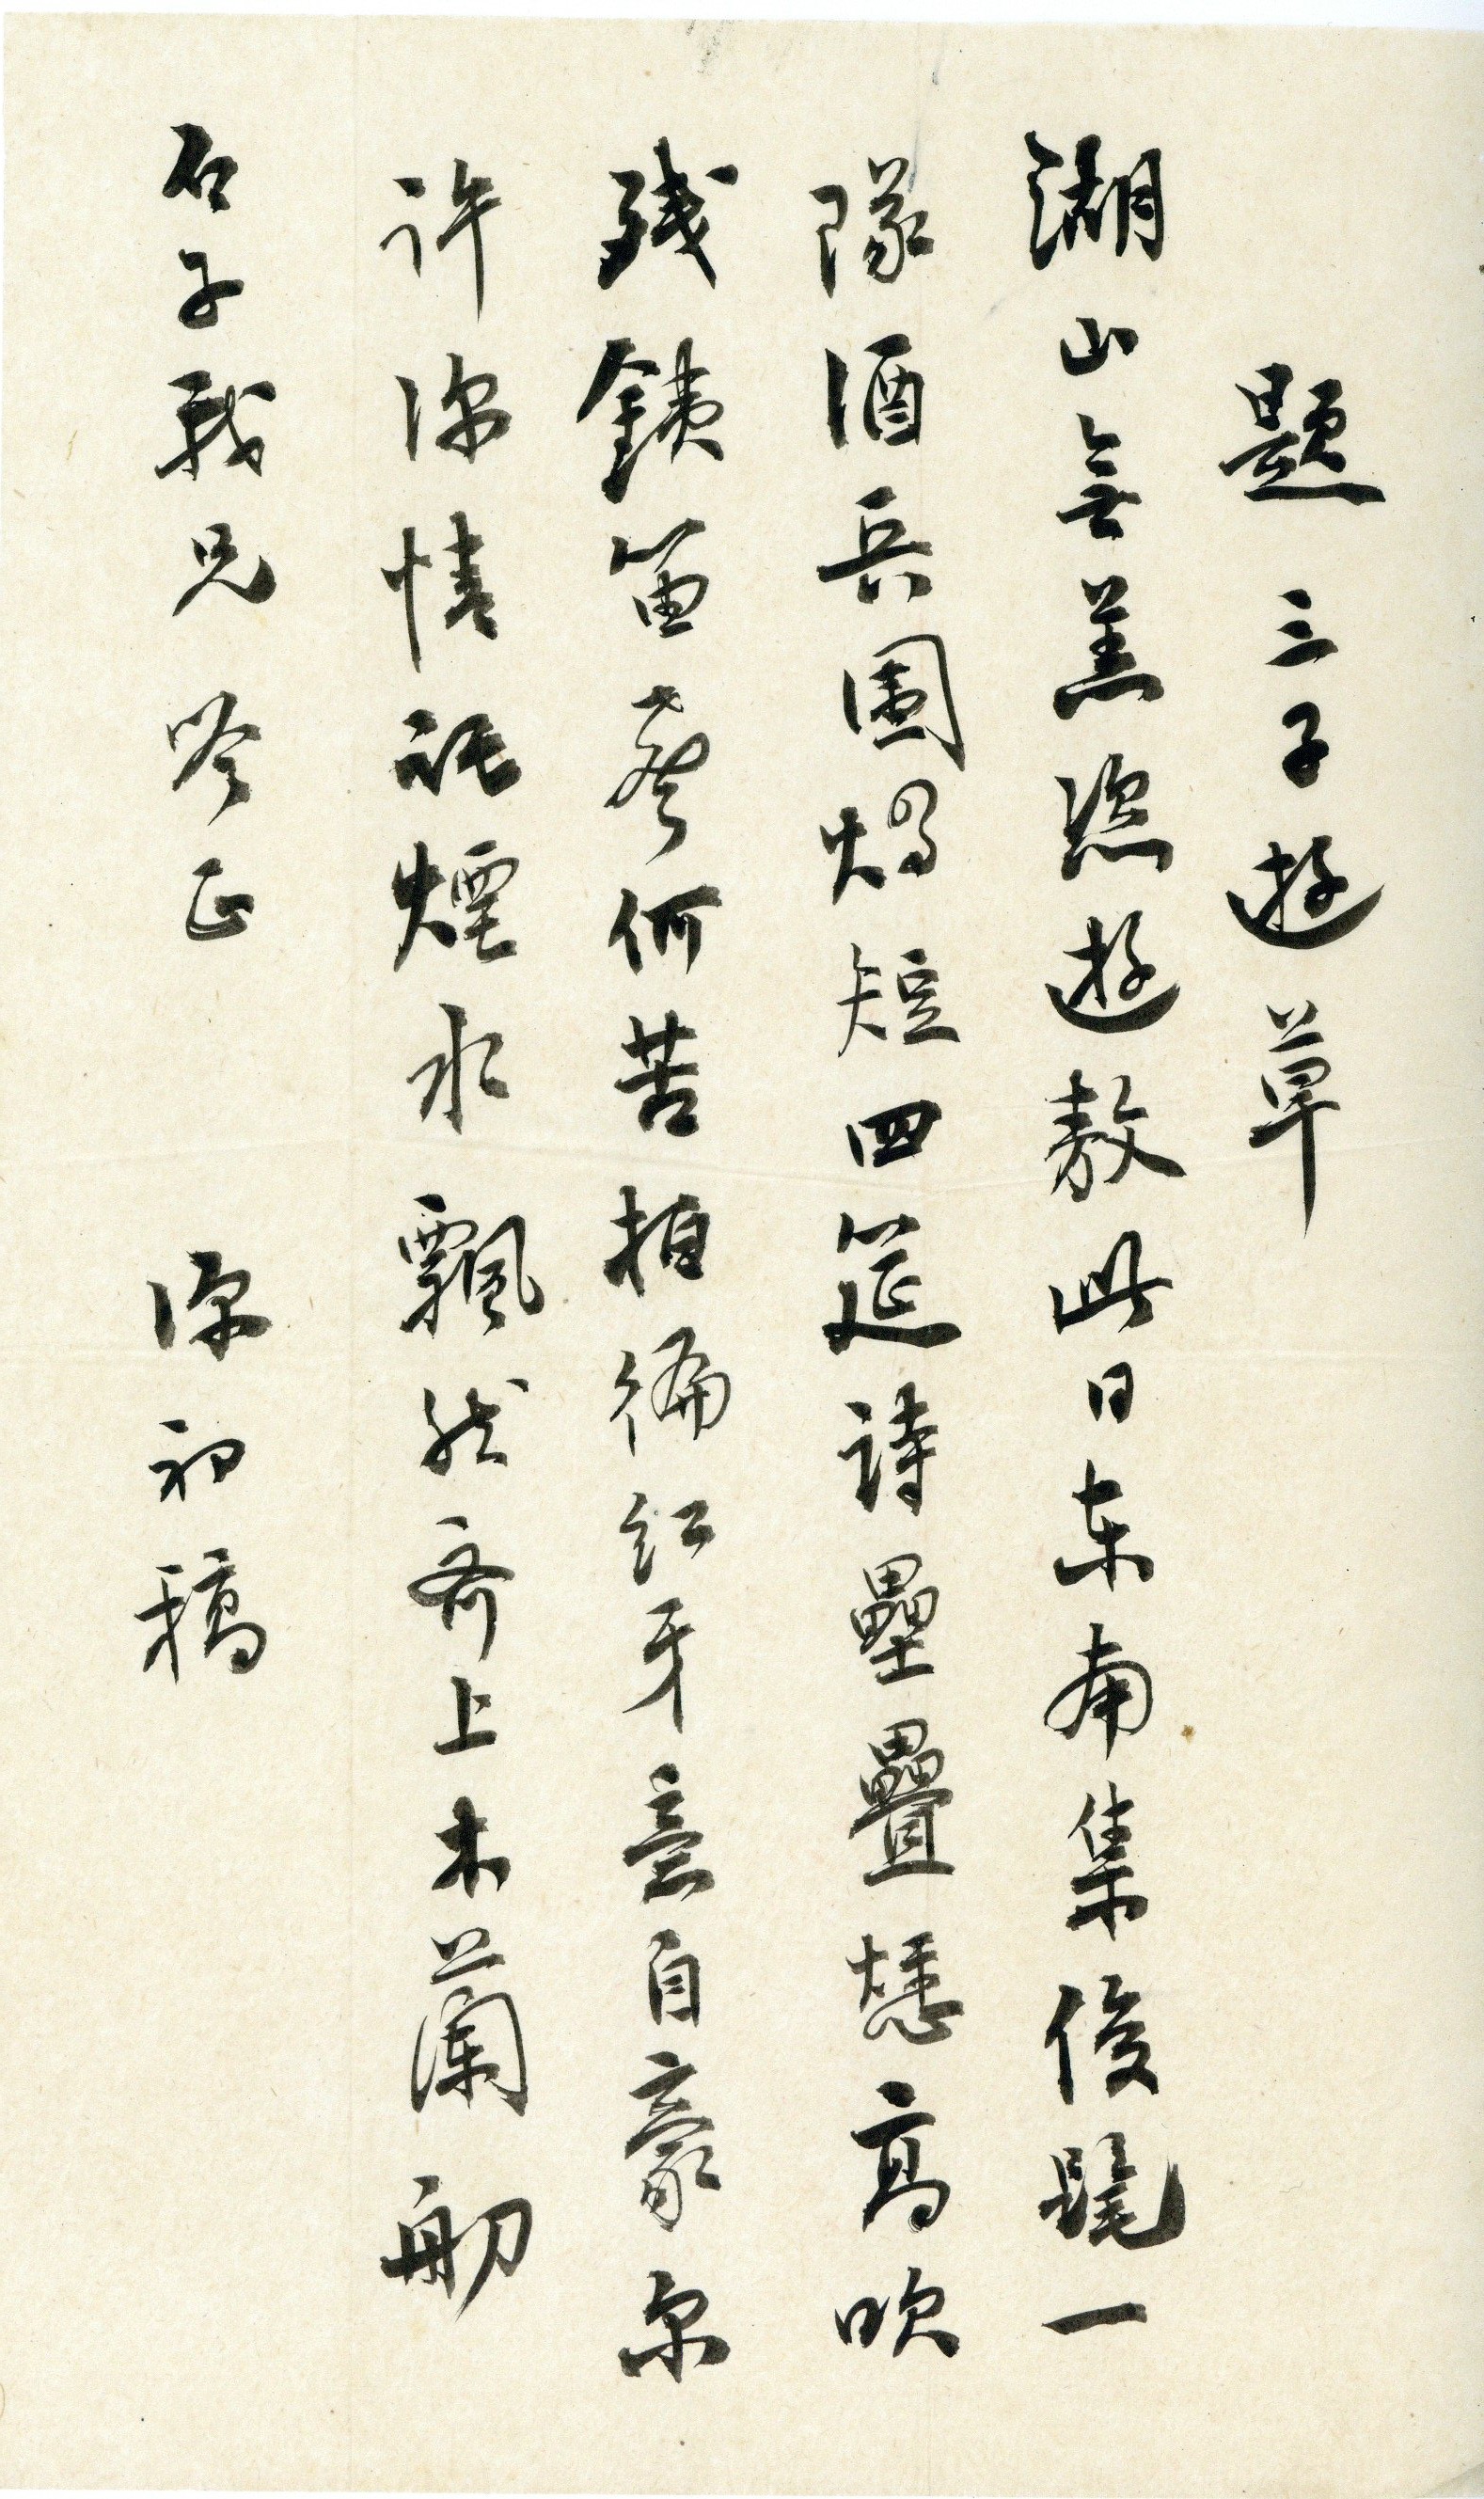 題 三子遊草
湖山無恙恣遊敖此日東南集俊髦一
隊酒兵圍燭短四筵詩壘疊愁高吹
殘鐵笛聲何苦拍徧紅牙意自豪尔
許深情託煙水飄然齊上木蘭舠
石子我兄吟正 深初稿